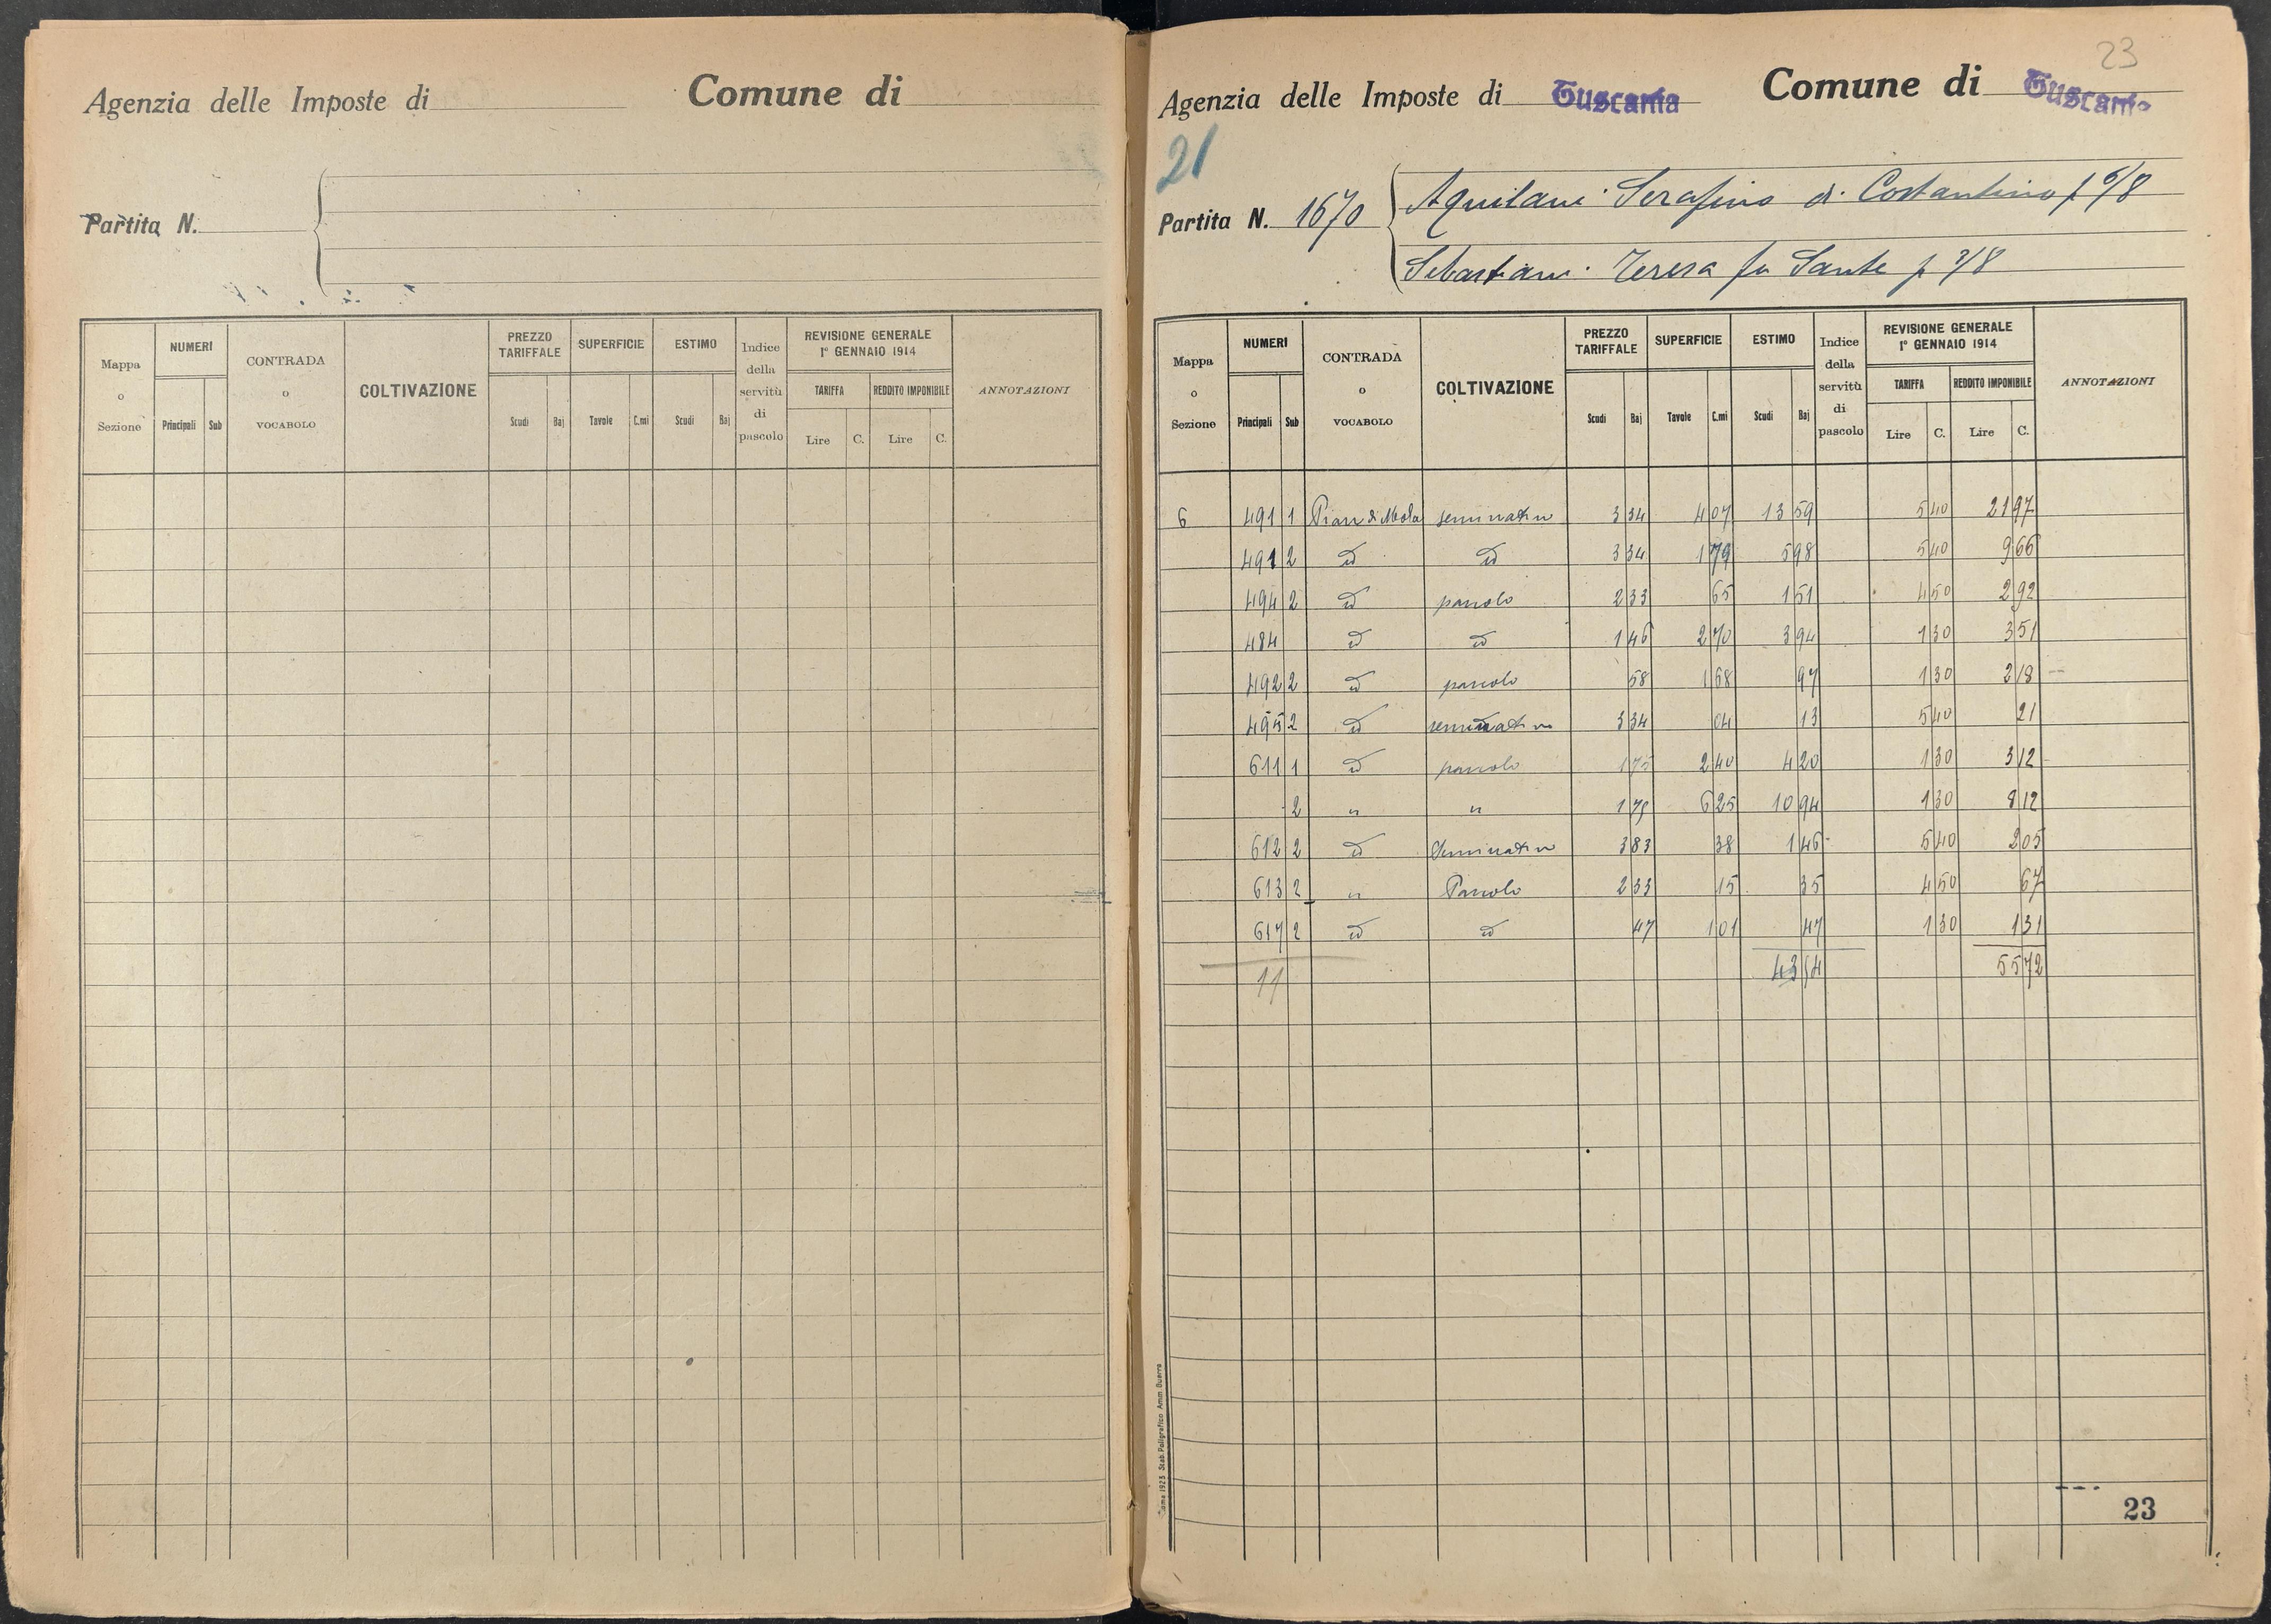 Agenzia delle Imposte di Comune di
Partita N.
Mappa o Sezione NUMERI Principali Sub CONTRADA o VOCABOLO COLTIVAZIONE PREZZO TARIFFALE Scudi Baj SUPERFICIE Tavole C.mi ESTIMO Scudi Baj Indice della servitù di pascolo REVISIONE GENERALE 1° GENNAIO 1914 TARIFFA Lire C. REDDITO IMPONIBILE Lire C. ANNOTAZIONI
23
Agenzia delle Imposte di Tuscania Comune di Tuscania
21
Partita N. 1670 Aquilani Serafino di Costantino p 6/8
Sebastiani Teresa fu Sante p 2/8
Mappa o Sezione NUMERI Principali Sub CONTRADA o VOCABOLO COLTIVAZIONE PREZZO TARIFFALE Scudi Baj SUPERFICIE Tavole C.mi ESTIMO Scudi Baj Indice della servitù di pascolo REVISIONE GENERALE 1° GENNAIO 1914 TARIFFA Lire C. REDDITO IMPONIBILE Lire C. ANNOTAZIONI
6 491 1 Pian di Mola seminativo 3 34 4 07 13 59 5 40 21 97
491 2 id id 3 34 1 79 5 98 5 40 9 66
494 2 id pascolo 2 33 65 1 51 4 50 2 92
484 id id 1 46 2 70 3 94 1 30 3 51
492 2 id pascolo 58 1 68 97 1 30 2 18
495 2 id seminativo 3 34 04 13 5 40 21
611 1 id pascolo 1 75 2 40 4 20 1 30 3 12
2 " " 1 75 6 25 10 94 1 30 8 12
612 2 id Seminativo 3 83 38 1 46 5 40 2 05
613 2 " Pascolo 2 33 15 35 4 50 67
617 2 id id 47 1 01 47 1 30 1 31
11 55 72
Roma 1923 Stab. Poligrafico Amm. Guerra
23